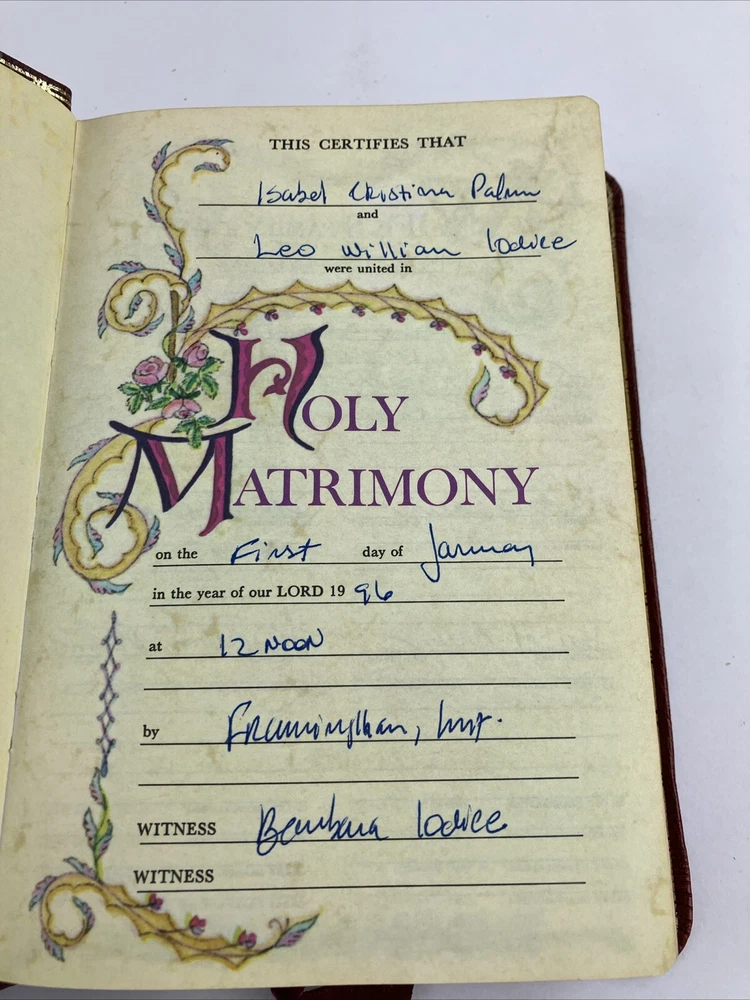 THIS CERTIFIES THAT
Isabel Cristina Palma
and
Leo Willian Iodice
were united in
HOLY
MATRIMONY
on the First day of January
in the year of our LORD 19 96
at 12 NOON
by Framingham,
WITNESS Barbara Iodice
WITNESS